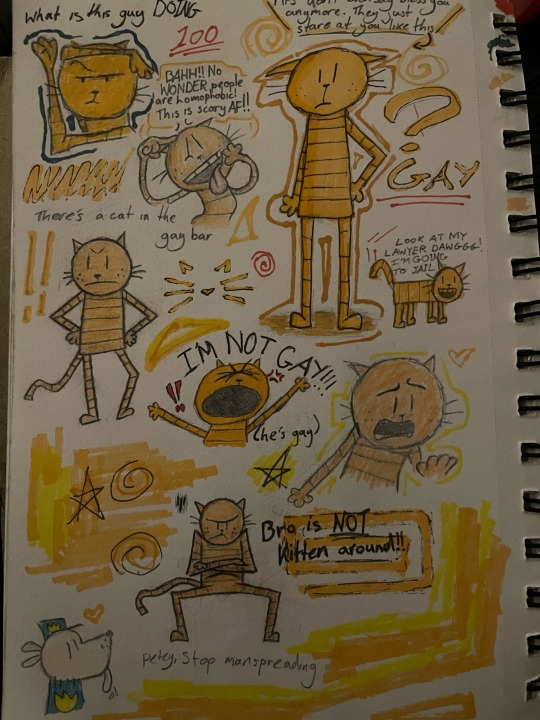 What is this guy DOING
don't say bless you
anymore. They just
stare at you like this
100
BAHH!! No
WONDER people
are homophobic!
This is scary AF!!
?
GAY
There's a cat in the
gay bar
!!
LOOK AT MY
LAWYER DAWGGG!
I'M GOING
TO JAIL
I'M NOT GAY!!!
!!
(he's gay)
Bro is NOT
Kitten around!!
Petey, Stop manspreading